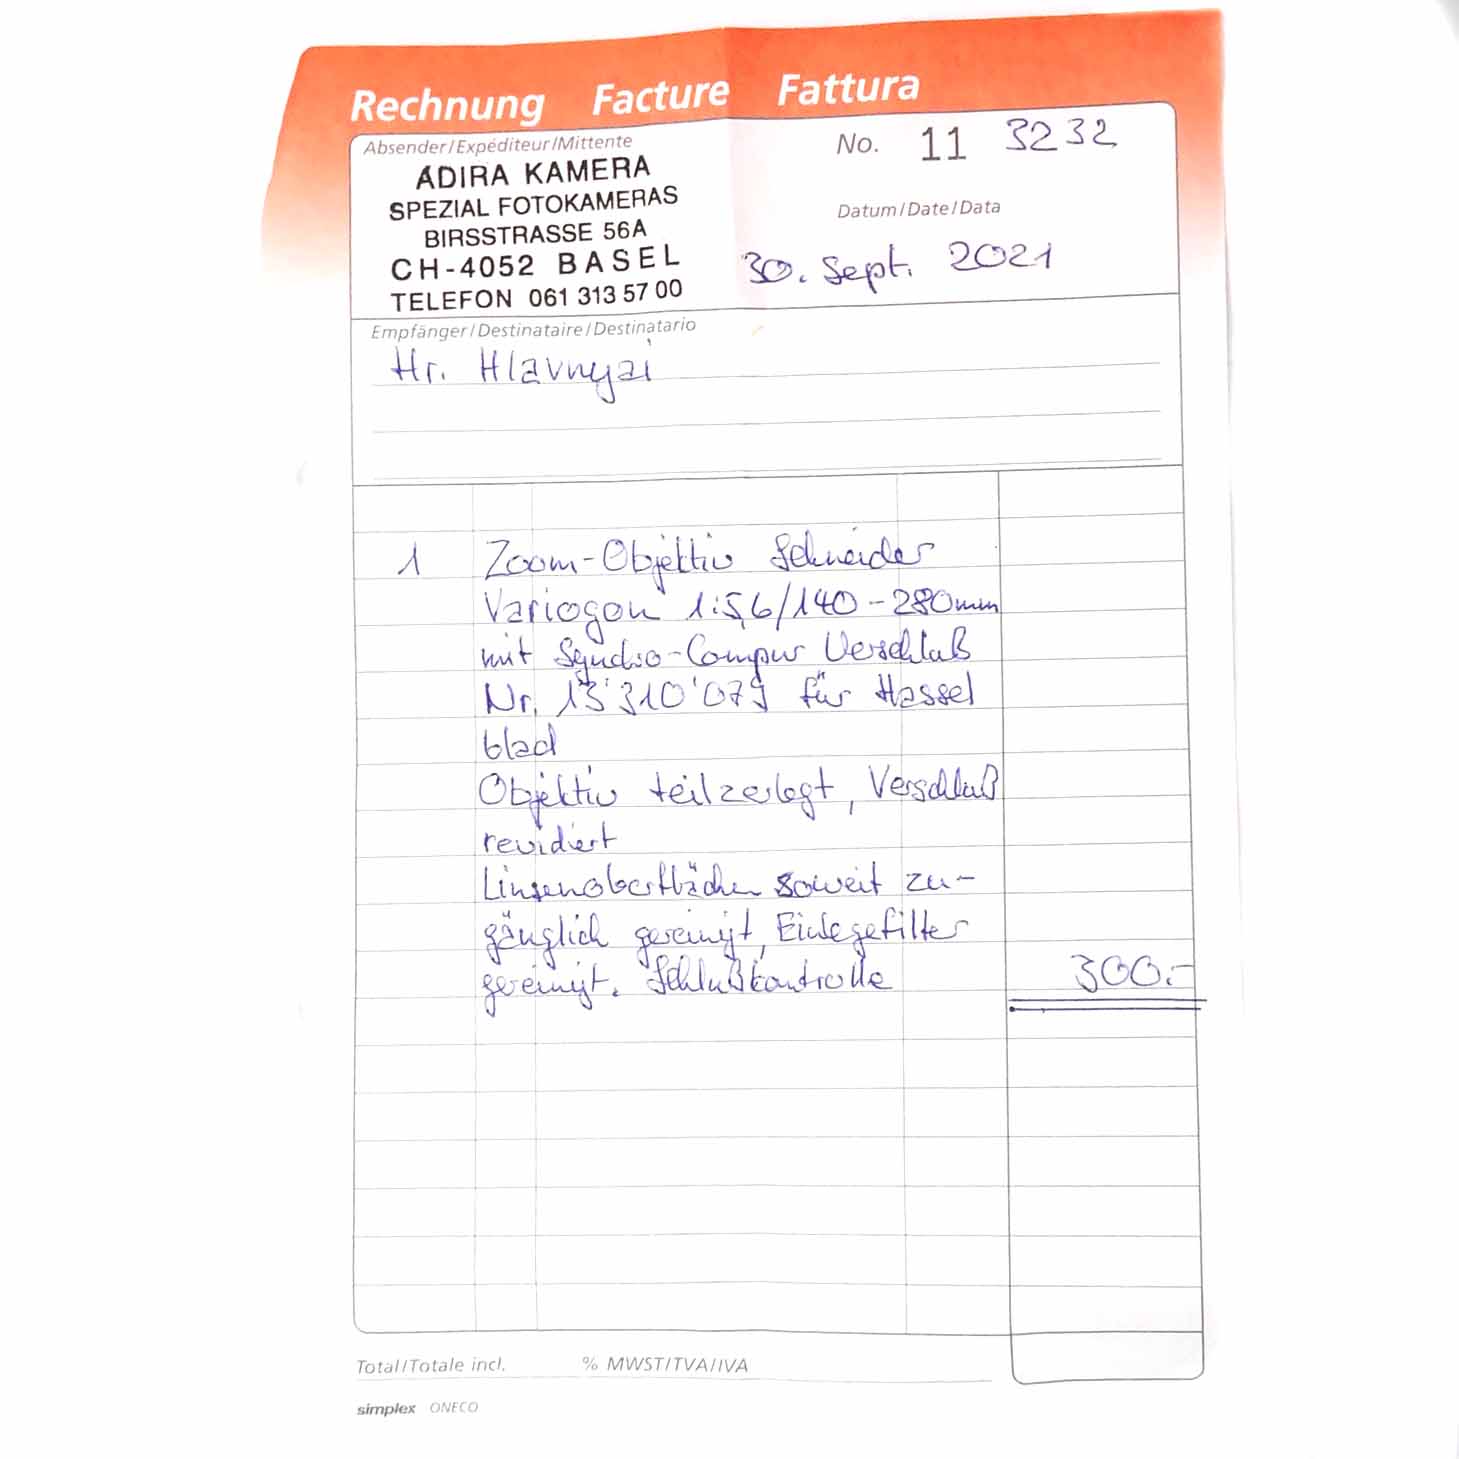 Rechnung Facture Fattura
Absender/Expéditeur/Mittente
ADIRA KAMERA
SPEZIAL FOTOKAMERAS
BIRSSTRASSE 56A
CH-4052 BASEL
TELEFON 061 313 57 00
No. 11 3232
Datum/Date/Data
30. Sept. 2021
Empfänger/Destinataire/Destinatario
Hr. Hlavnyai
1 Zoom-Objektiv Schneider
Variogon 1:5,6/140-280mm
mit Synchro-Compur Verschluß
Nr. 13'310'079 für Hassel
blad
Objektiv teilzerlegt, Verschluß
revidiert
Linsenoberflächen soweit zu-
gänglich gereinigt, Einlegefilter
gereinigt. Schlußkontrolle 300.-
Total/Totale incl. % MWST/TVA/IVA
simplex ONECO